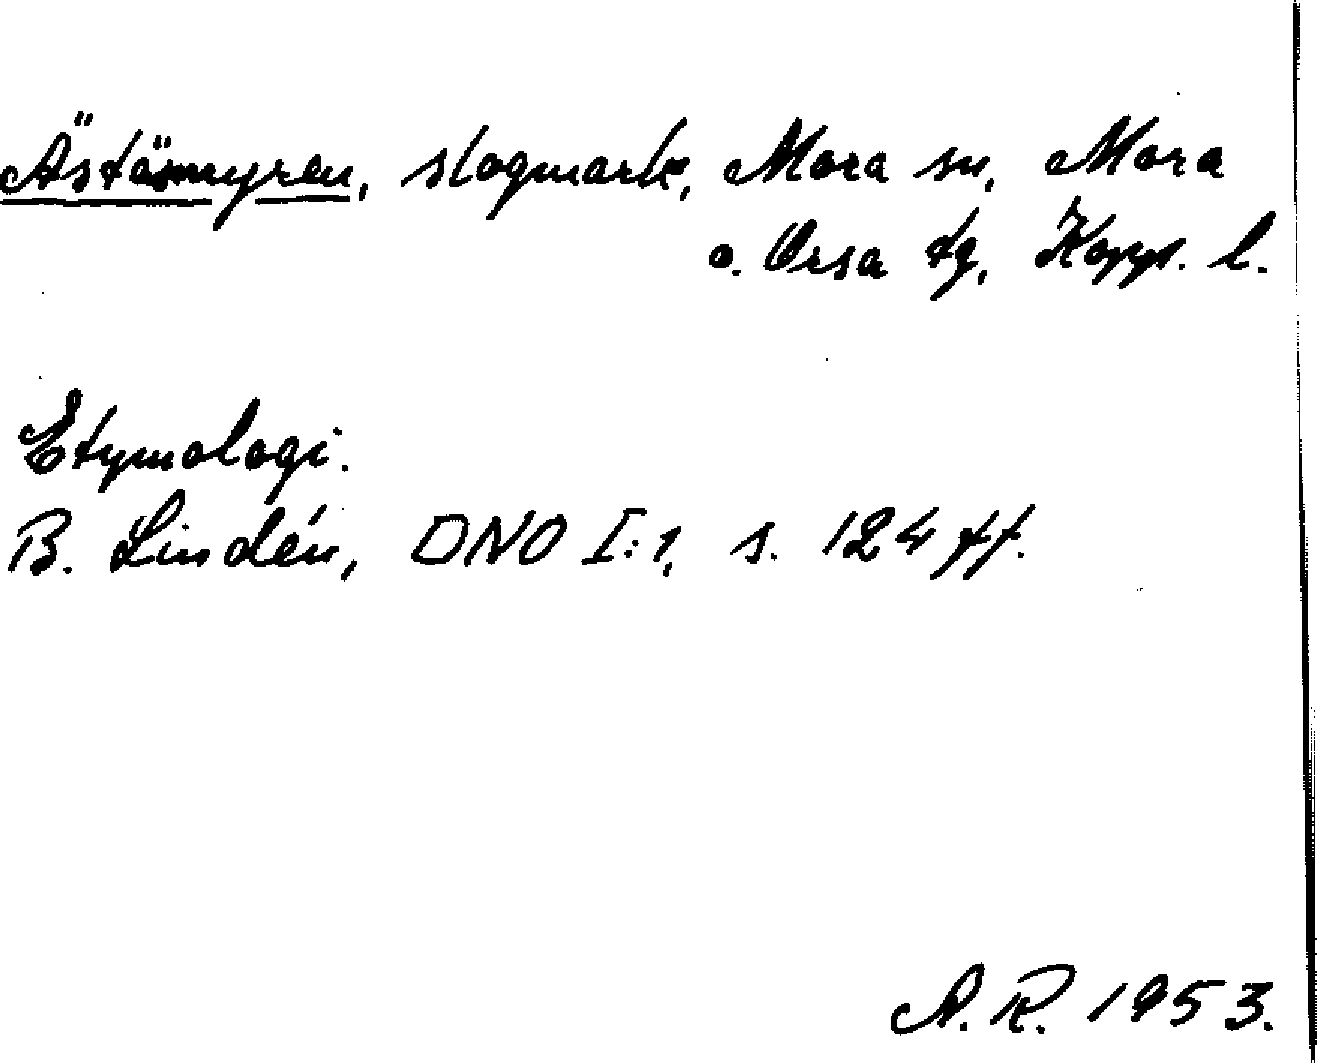 Ästömyren, slogmark, Mora sn, Mora
o. Orsa tg, Kopp. l.
Etymologi.
B. Lindén, DNO I:1, s. 124 ff.
A.R. 1953.